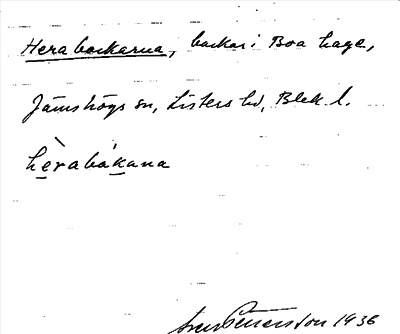 Herabackarna, backar i Boa hage,
Jämshögs sn, Listers hd, Blek. l.
hèrabákana
Pettersson 1936